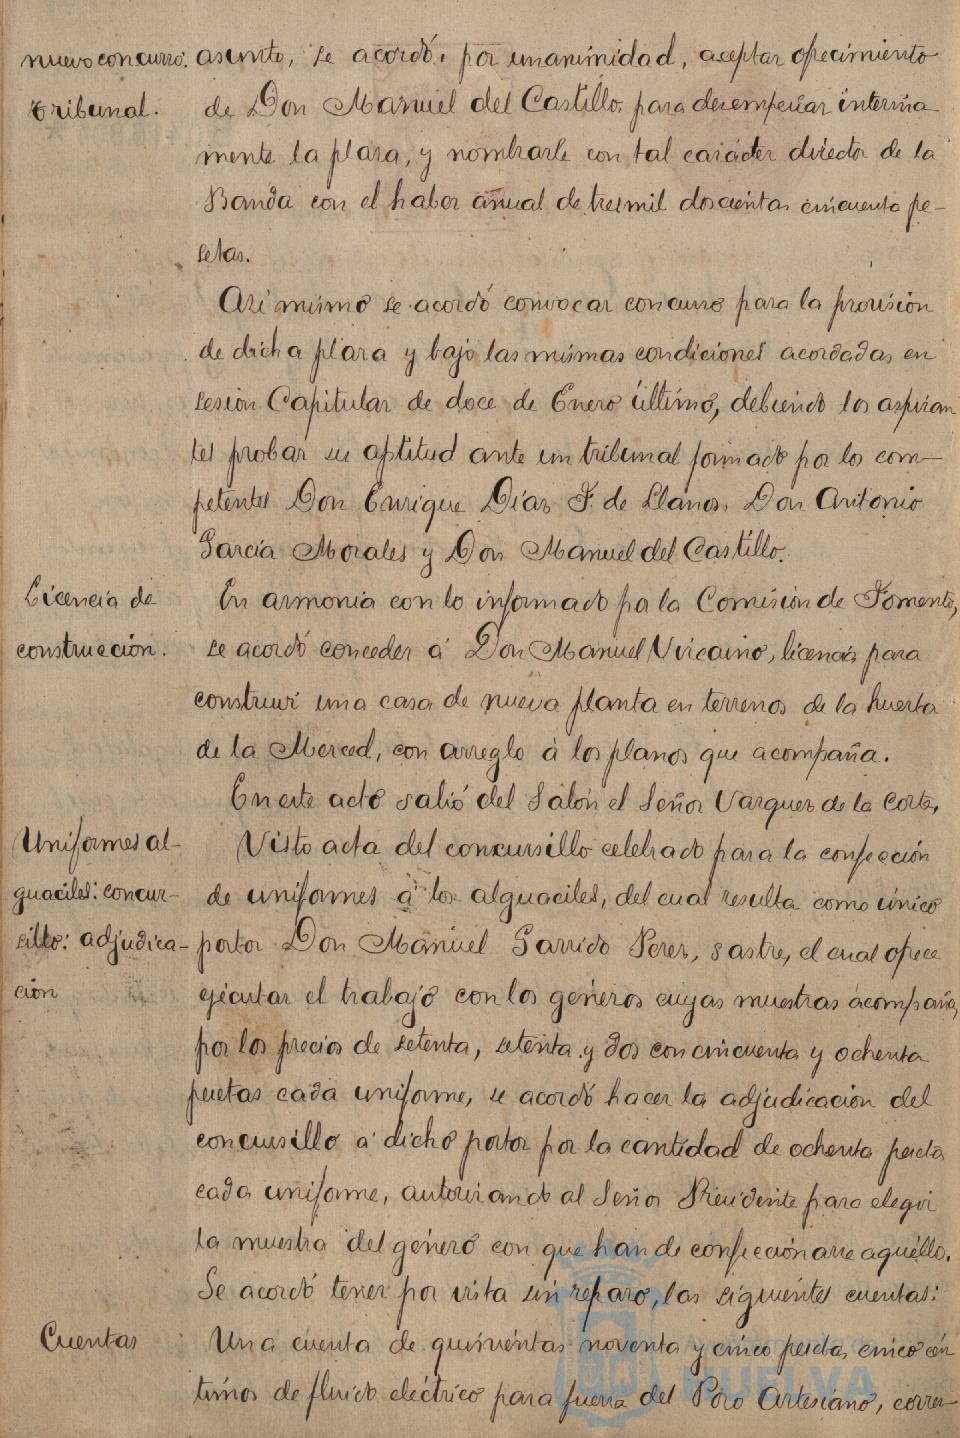 nuevo concurso: asunto, se acordó, por unanimidad, aceptar ofrecimiento
tribunal. de Don Manuel del Castillo, para desempeñar interina
mente la plaza, y nombrarle con tal carácter director de la
Banda con el haber anual de tres mil doscientas cincuenta pe-
setas.
Asi mismo se acordó convocar concurso para la provisión
de dicha plaza y bajo las mismas condiciones acordadas en
sesión Capitular de doce de Enero último, debiendo los aspiran
tes probar su aptitud ante un tribunal formado por los com-
petentes Don Enrique Díaz F. de Llanos, Don Antonio
García Morales y Don Manuel del Castillo.
Licencia de En armonia con lo informado por la Comisión de Fomento,
construcción. se acordó conceder á Don Manuel Vizcaino, licencia para
construir una casa de nueva planta en terrenos de la huerta
de la Merced, con arreglo á los planos que acompaña.
En este acto salió del Salón el Señor Vazquez de la Corte,
Uniformes al- Visto acta del concursillo celebrado para la confección
guaciles: concur- de uniformes á los alguaciles, del cual resulta como único
sillo: adjudica- postor Don Manuel Garrido Perez, sastre, el cual ofrece
ción ejecutar el trabajo con los géneros cuyas muestras acompaña,
por los precios de setenta, setenta y dos con cincuenta y ochenta
pesetas cada uniforme, se acordó hacer la adjudicación del
concursillo á dicho postor por la cantidad de ochenta pesetas
cada uniforme, autorizando al Señor Presidente para elegir
la muestra del género con que han de confeccionarse aquéllo.
Se acordó tener por vista sin reparo, las siguientes cuentas:
Cuentas Una cuenta de quinientas noventa y cinco pesetas, cinco cén
timos de fluido eléctrico para fuerza del Pozo Artesiano, corres-
Ayuntamiento de
HUELVA